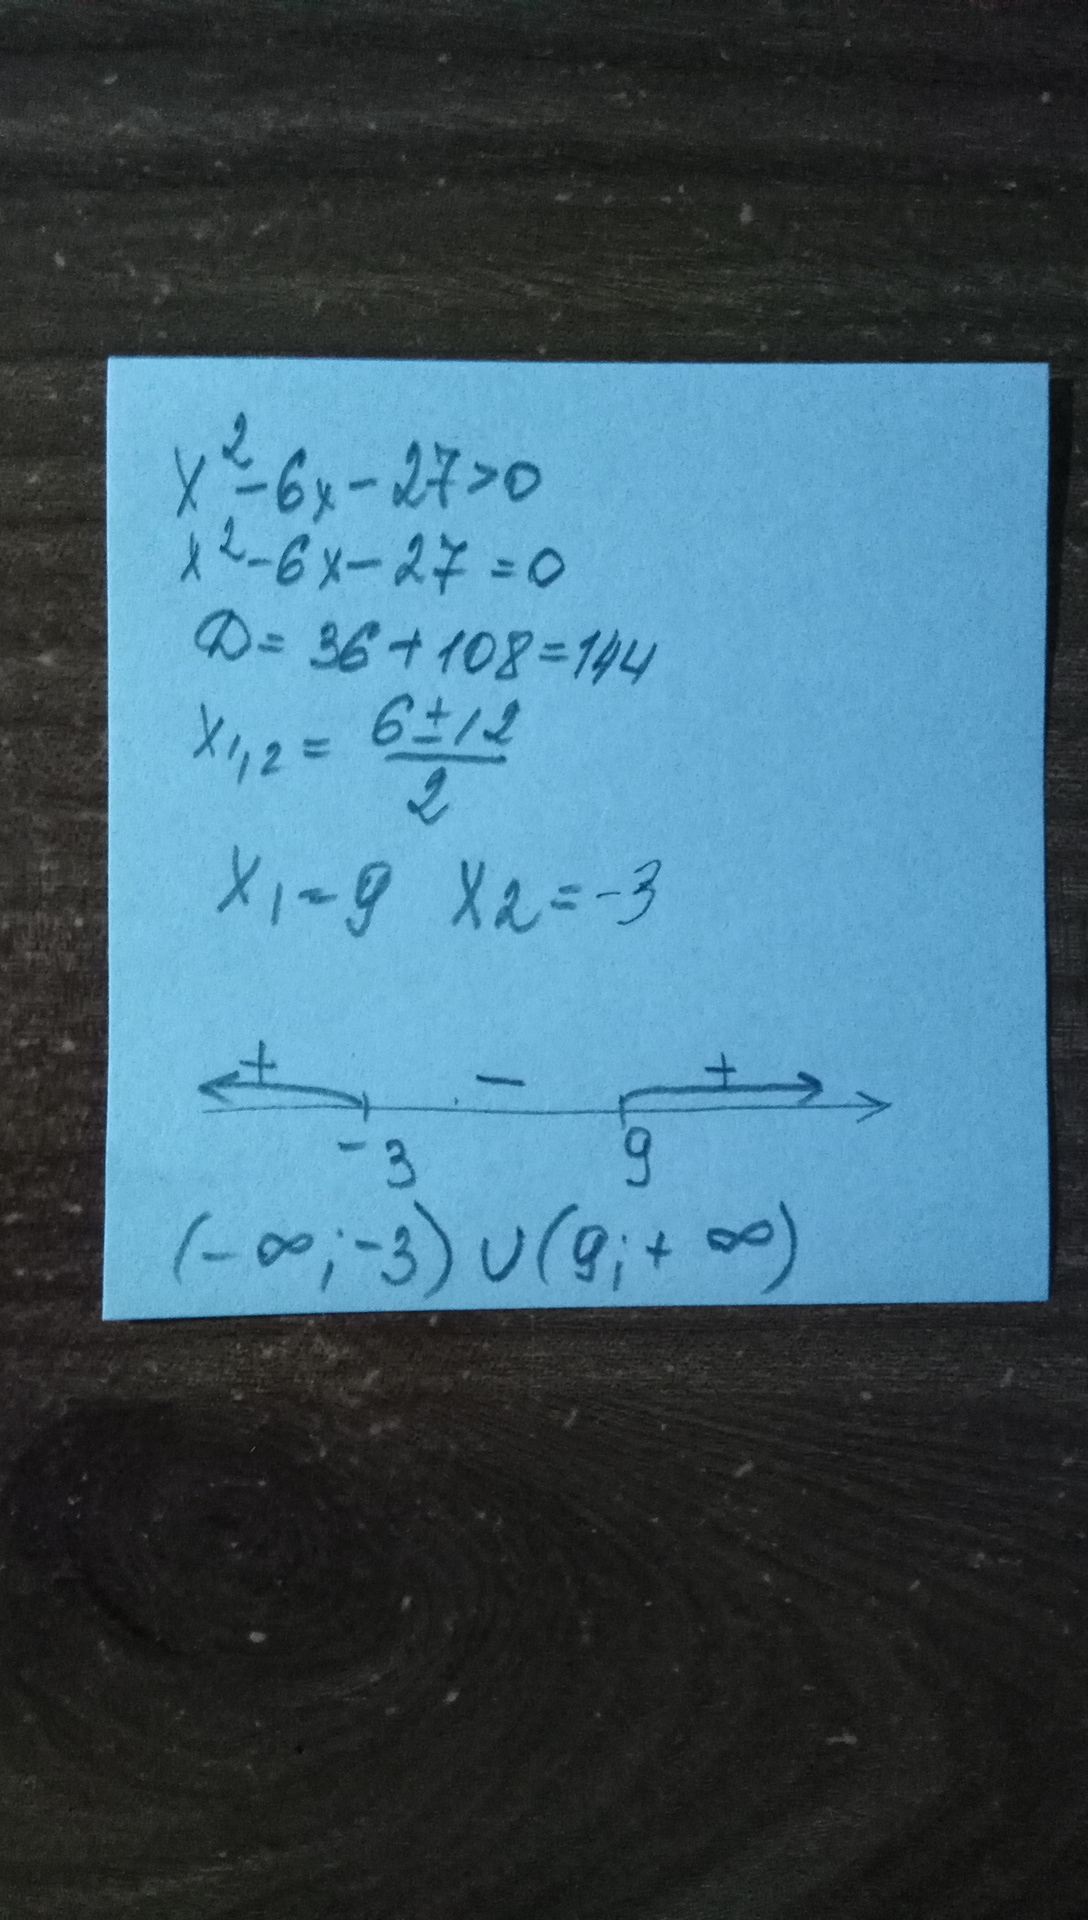 x²-6x-27>0
x²-6x-27=0
D=36+108=144
x₁,₂=(6±12)/2
x₁=9 x2=-3
+ - +
-3 9
(-∞;-3)∪(9;+∞)